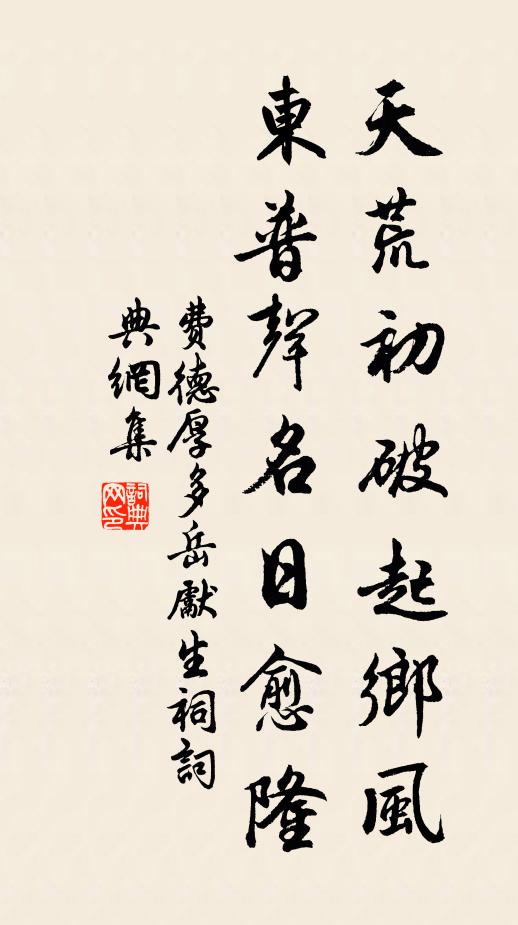 天荒初破起鄉風
東普聲名日愈隆
費德厚多岳獻生祠詞
典網集
詞典網印